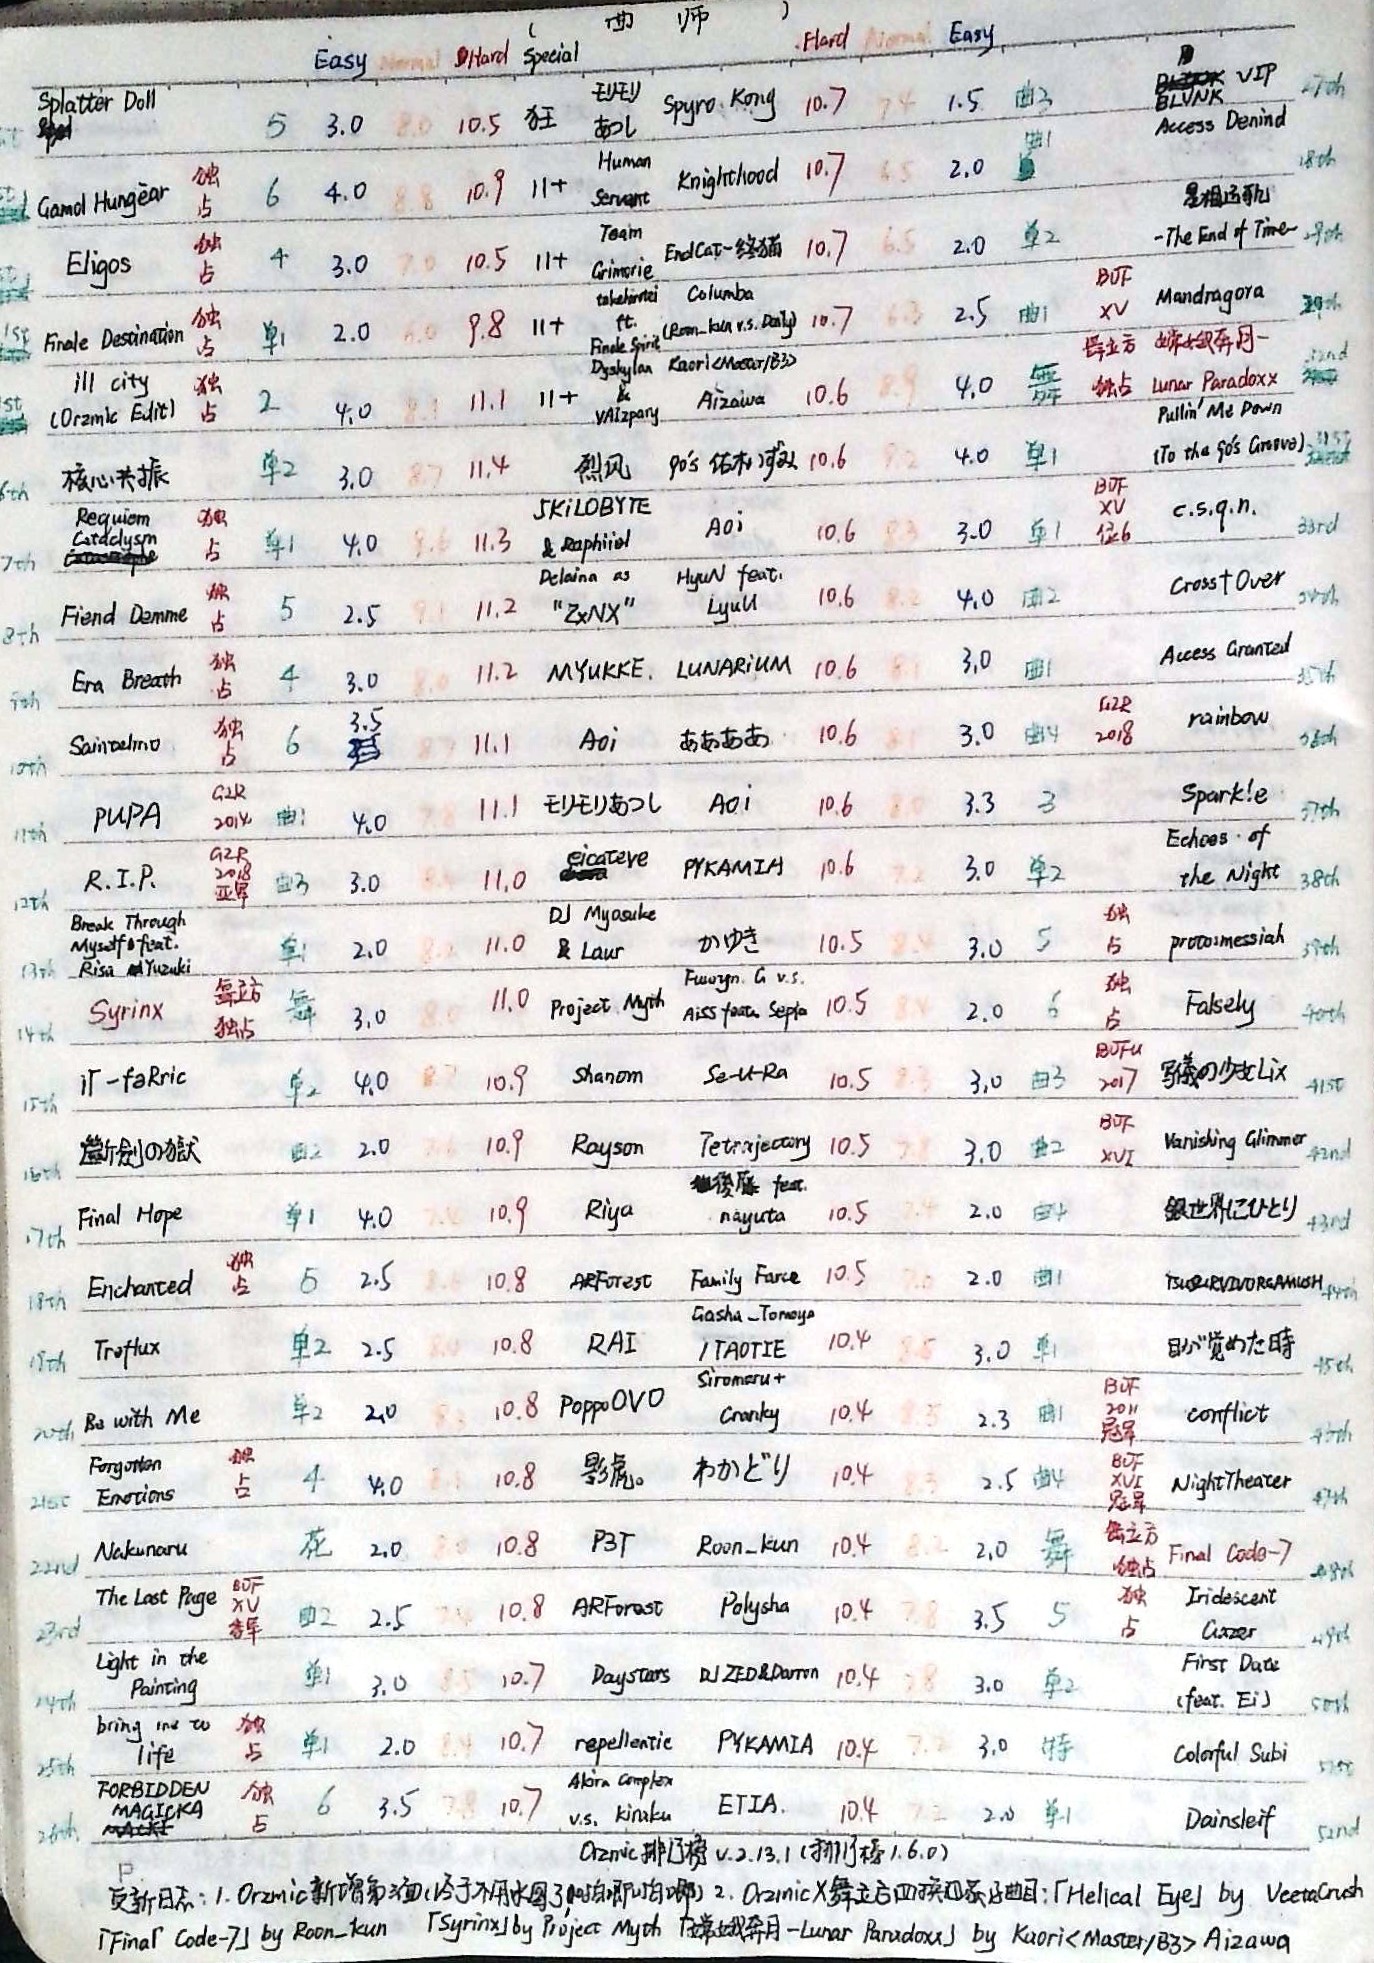 ( 曲师 )
Easy Normal Hard Special Hard Normal Easy
Splatter Doll 5 3.0 8.0 10.5 狂 モリモリあつし Spyro Kong 10.7 7.4 1.5 曲3 BLVNK VIP 27th
Gamol Hungēar 独占 6 4.0 8.8 10.9 11+ Human Servant Knighthood 10.7 6.5 2.0 曲1 Access Denind 28th
Eligos 独占 4 3.0 7.0 10.5 11+ Team Grimorie EndCat-终猫 10.7 6.5 2.0 单2 -The End of Time- 29th
Finale Destination 独占 单1 2.0 6.0 9.8 11+ takehirotei ft. Finale Spirit Columba (Roon_kun v.s. Daily) 10.7 6.3 2.5 曲1 BOF XV Mandragora
ill city (Orzmic Edit) 独占 2 4.0 8.1 11.1 11+ Dyskylan & VAIzpany Kaori<Master/B3> Aizawa 10.6 8.9 4.0 舞 舞立方独占 嫦娥奔月-Lunar Paradoxx 32nd
6th 核心共振 单2 3.0 8.7 11.4 烈风 90's 佑木いずみ 10.6 9.2 4.0 单1 Pullin' Me Down (To the 90's Groove) 31st
7th Requiem Cataclysm 独占 单1 4.0 9.6 11.3 SKiLOBYTE & Raphiiel Aoi 10.6 8.3 3.0 单1 BOF XV 位6 c.s.q.n. 33rd
8th Fiend Demme 独占 5 2.5 9.1 11.2 Delaina as "ZxNX" HyuN feat. LyuU 10.6 8.2 4.0 曲2 Cross†Over 34th
9th Era Breath 独占 4 3.0 8.0 11.2 MYUKKE. LUNARiUM 10.6 8.1 3.0 曲1 Access Granted 35th
10th Saintelmo 独占 6 3.5 8.7 11.1 Aoi ああああ 10.6 8.1 3.0 曲4 G2R 2018 rainbow 36th
11th PUPA G2R 2014 曲1 4.0 7.8 11.1 モリモリあつし Aoi 10.6 8.0 3.3 3 Spark!e 37th
12th R.I.P. G2R 2018 亚军 曲3 3.0 8.4 11.0 eicateve PYKAMIA 10.6 7.2 3.0 单2 Echoes of the Night 38th
13th Break Through Myself feat. Risa Yuzuki 单1 2.0 8.2 11.0 DJ Myosuke & Laur かゆき 10.5 8.4 3.0 5 独占 protosmessiah 39th
14th Syrinx 舞立方独占 舞 3.0 8.0 11.0 Project Myth Fuwyn. G v.s. Aiss feat. Septa 10.5 8.4 2.0 6 独占 Falsely 40th
15th iT-faRric 单2 4.0 8.7 10.9 Shanom Se-U-Ra 10.5 8.3 3.0 曲3 BOFU 2017 写儀の少女Lix 41st
16th 斷劍の獄 曲2 2.0 7.6 10.9 Rayson Tetrajectory 10.5 7.8 3.0 曲2 BOF XVI Vanishing Glimmer 42nd
17th Final Hope 单1 4.0 7.6 10.9 Riya 後藤 feat. nayuta 10.5 7.4 2.0 曲4 銀世界にひとり 43rd
18th Enchanted 独占 5 2.5 8.6 10.8 ARForest Family Farce 10.5 7.0 2.0 曲1 44th
19th Treflux 单2 2.5 8.0 10.8 RAI Gasha_Tomoya / TAOTIE 10.4 8.5 3.0 单1 目が覚めた時 45th
20th Be with Me 单2 2.0 8.3 10.8 PoppoOVO Siromaru+ Cranky 10.4 8.3 2.3 曲1 BOF 2011 冠军 conflict 46th
21st Forgotten Emotions 独占 4 4.0 8.1 10.8 影虎。 わかどり 10.4 8.3 2.5 曲4 BOF XVI 冠军 NightTheater 47th
22nd Nakunaru 花 2.0 8.0 10.8 P3T Roon_kun 10.4 8.2 2.0 舞 舞立方独占 Final Code-7 48th
23rd The Last Page BOF XV 季军 曲2 2.5 7.4 10.8 ARForest Polysha 10.4 7.8 3.5 5 独占 Iridescent Gazer 49th
24th Light in the Painting 单1 3.0 8.5 10.7 Daystars DJ ZED&Darron 10.4 7.8 3.0 单2 First Date (feat. Ei) 50th
25th bring me to life 独占 单1 2.0 8.4 10.7 repellentic PYKAMIA 10.4 7.2 3.0 特 Colorful Subi 51st
26th FORBIDDEN MAGICKA 独占 6 3.5 7.8 10.7 Akira Complex v.s. kiraku ETIA. 10.4 7.2 2.0 单1 Dainsleif 52nd
Orzmic 排行榜 v.2.13.1 (排行榜1.6.0)
更新日志: 1. Orzmic新增第3曲 2. OrzmicX舞立方 曲目:「Helical Eye」 by VeetaCrush
「Final Code-7」 by Roon_kun 「Syrinx」 by Project Myth 「嫦娥奔月-Lunar Paradoxx」 by Kaori<Master/B3> Aizawa